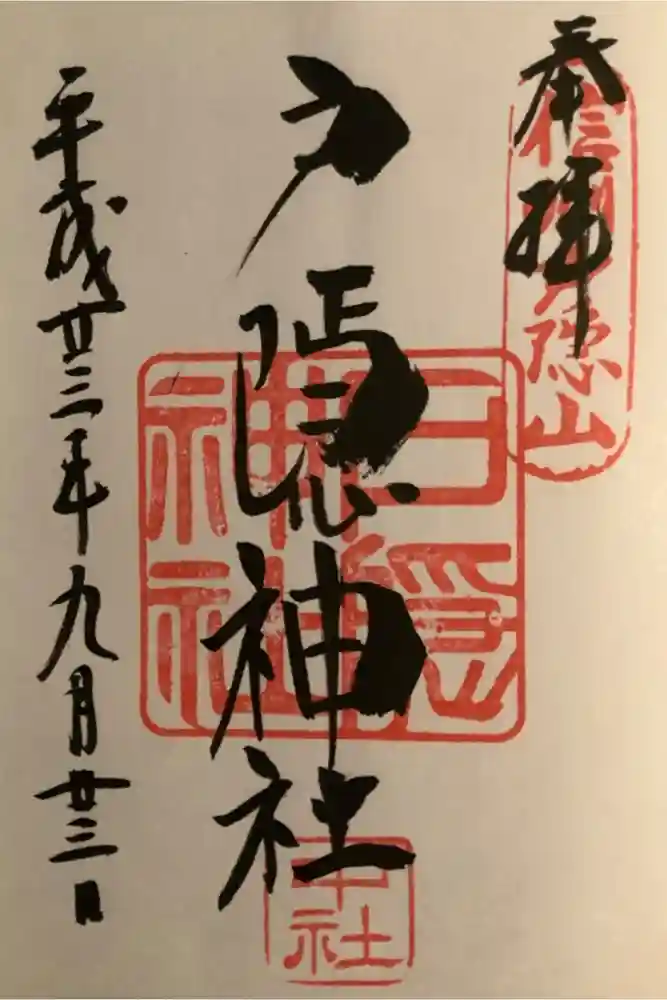 奉拝
信州戸隠山
戸隠神社
戸隠神社
中社
平成廿三年九月廿三日